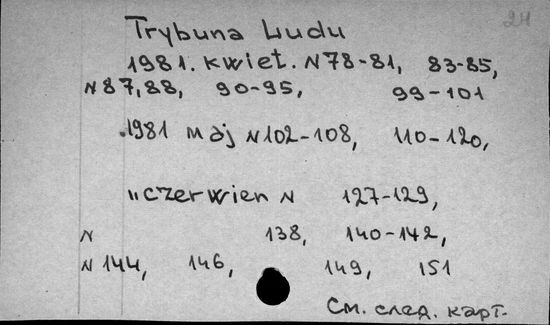 24
Trybuna Ludu
1981. kwiet. N 78-81, 83-85,
N 87,88, 90-95, 99-101
1981 maj N 102-108, 110-120,
"czerwien N 127-129,
N 138, 140-142,
N 144, 146, 149, 151
См. след. карт.